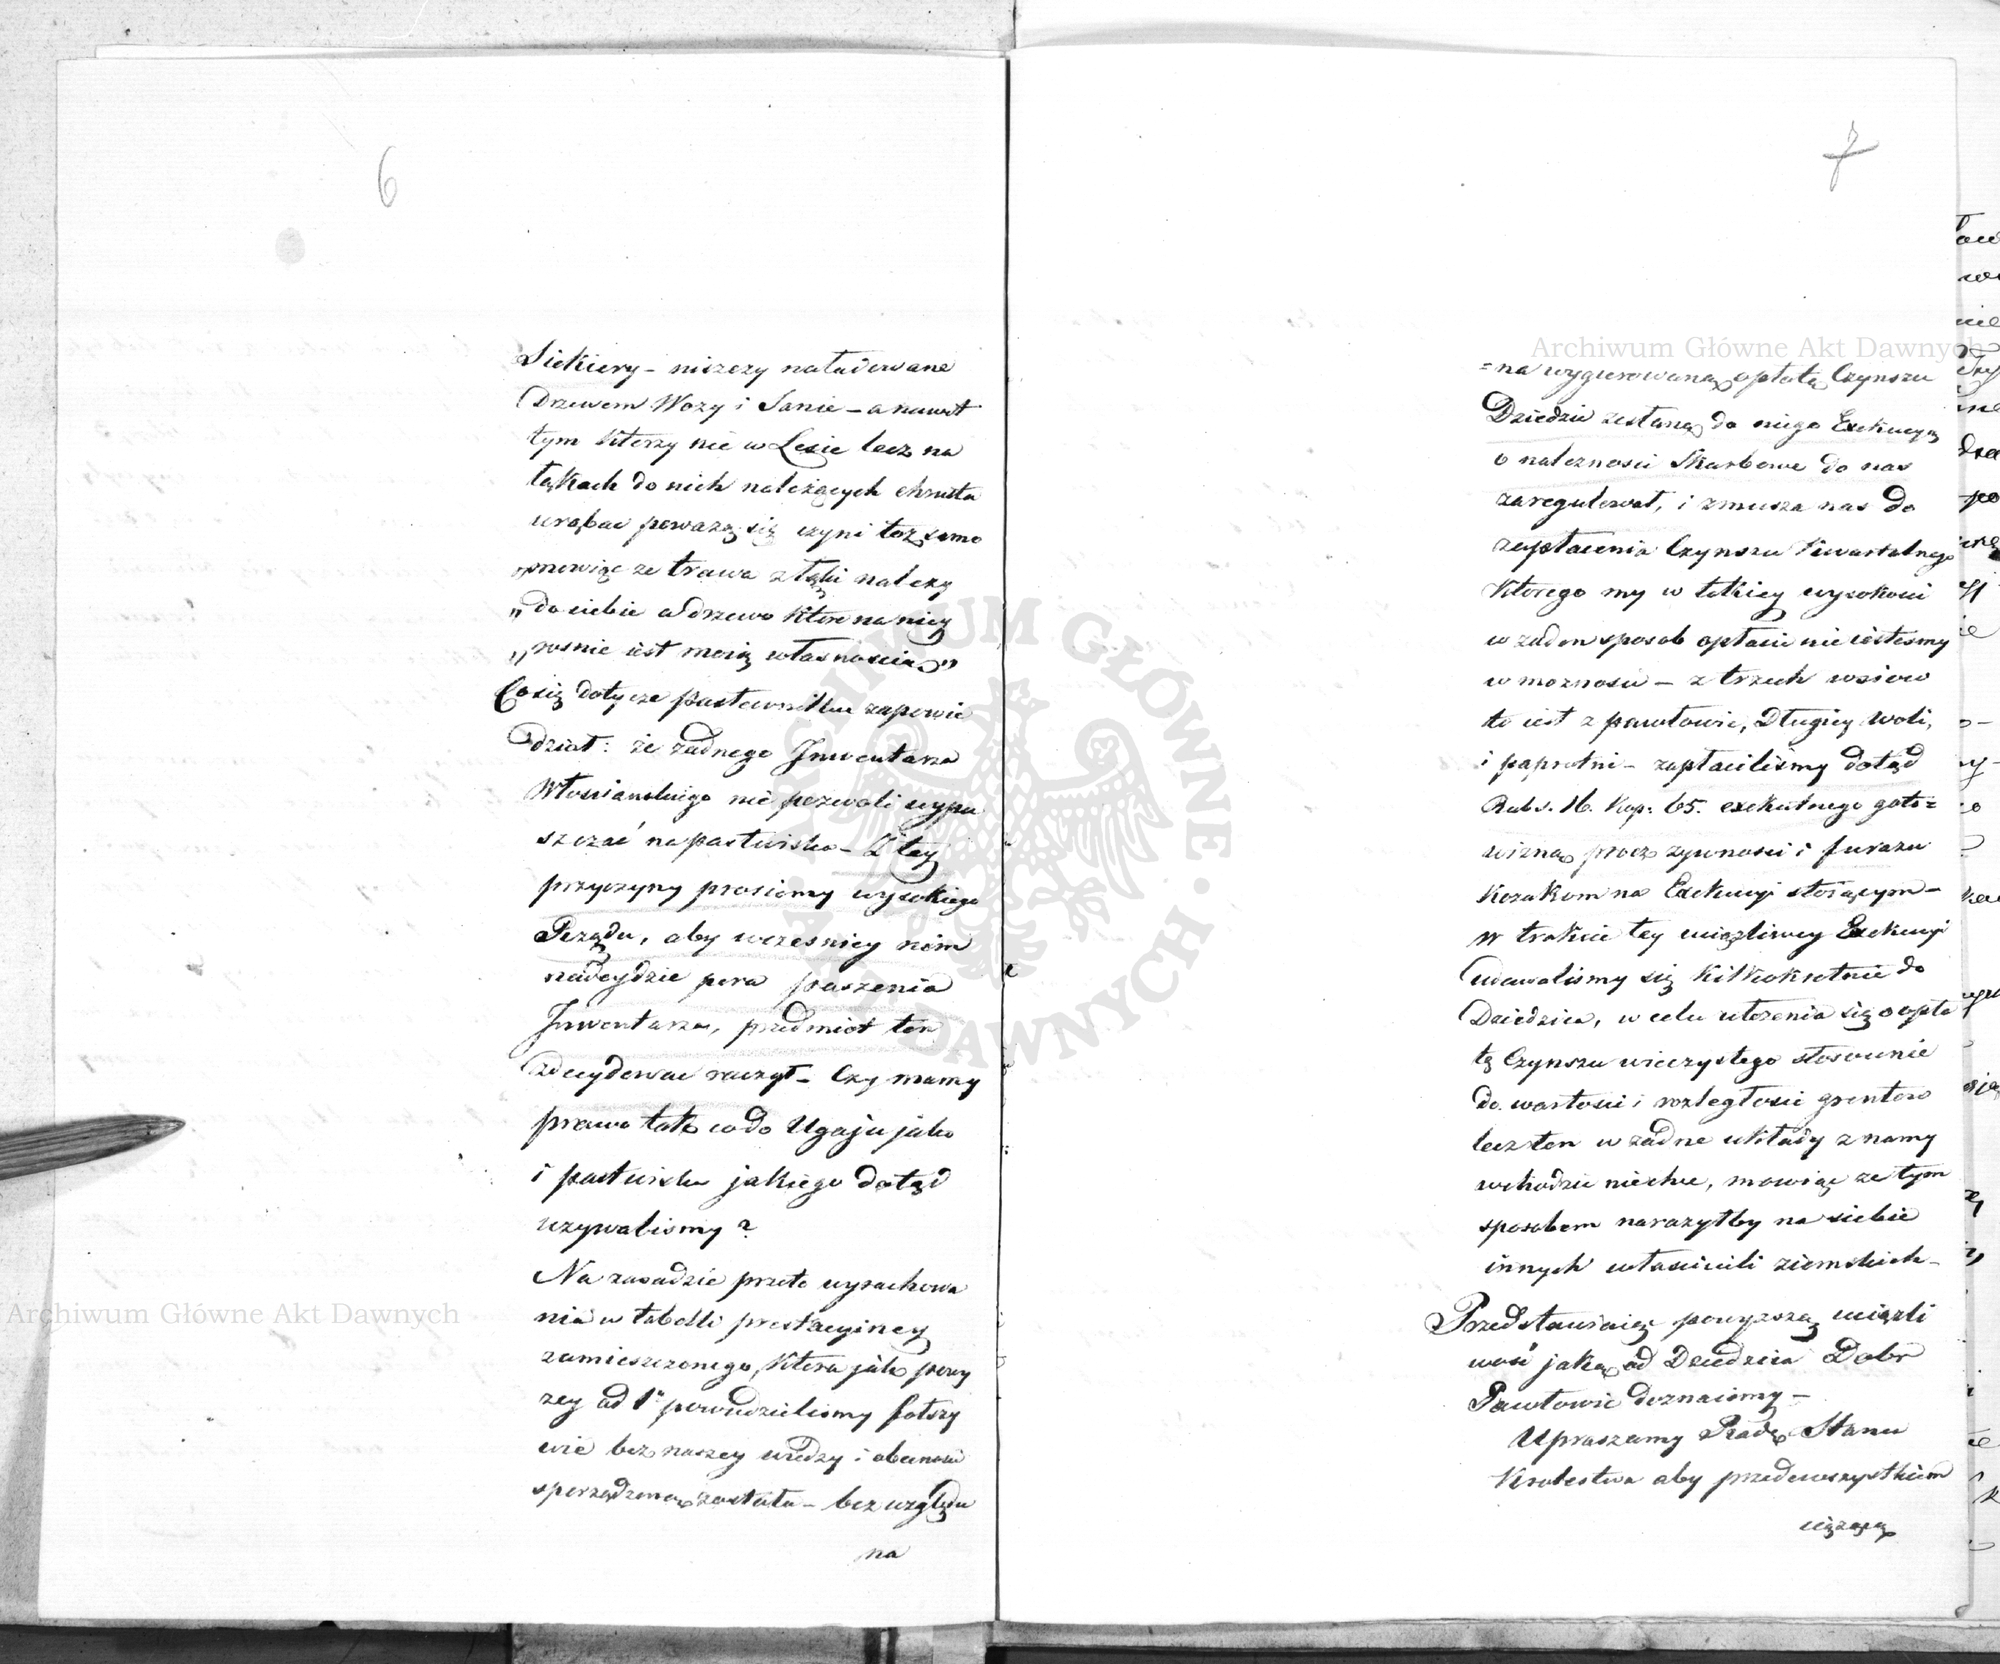 6
Siekiery – niszczy naładowane
Drzewem Wozy i Sanie – a nawet
tym którzy nie w Lesie lecz na
łąkach do nich należących chrustu
urąbac poważą się czyni toż samo
„mowiąc ze trawa z łąki nalezy
„do siebie a drzewo które na niey
„rosnie iest moią własnoscia”
Co się dotycze pastewniku zapowie
dział: że żadnego Inwentarza
Włosciańskiego nie pozwoli wypu
szczać na pastwisko – Z tey
przyczyny prosiemy wysokiego
Rządu, aby wczesniey nim
nadeydzie pora paszenia
Inwentarza, przedmiot ten
zdecydowac raczył – Czy mamy
prawo tak co do Ugaju jako
i pastwiska jakiego dotąd
uzywalismy?
Na zasadzie przeto wyrachowa
nia w tabelli prestacyiney
zamieszczonego, która jak powy
zey ad 1º powiedzielismy fałszy
wie bez naszey wiedzy i obecnosci
sporządzona została – bez względu
na
7
=na wygurowaną opłatę Czynszu
Dziedzic zesłaną do niego Exekucyą
o naleznosci Skarbowe do nas
zaregulował, i zmusza nas do
zapłacenia Czynszu Kwartalnego
Ktorego my w takiey wysokosci
w żaden sposob opłacic nie iestesmy
w moznosci – z trzech wsiow
to iest z Pawłowic, Długiey Woli,
i Paprotni – zapłacilismy dotąd
Rubs. 16. Kop: 65. exekutnego goto=
wizną procz zywnosci i furazu
Kozakom na Exekucyi stoiącym –
W trakcie tey uciązliwey Exekucyi
udawalismy się kilkokrotnie do
Dziedzica, w celu ułozenia się o opła
tę Czynszu wieczystego stosownie
do wartosci i rozległosci gruntow
lecz ten w żadne układy z namy
wchodzic niechce, mowiąc ze tym
sposobem naraziłby na siebie
innych własicieli ziemskich –
Przedstawiaiąc powyzszą uciązli
wość jaką od Dziedzica Dobr
Pawłowic doznaiemy –
Upraszamy Radę Stanu
Krolestwa aby przedewszystkiem
ciązącą
Archiwum Główne Akt Dawnych
Archiwum Główne Akt Dawnych
ARCHIWUM GŁÓWNE AKT DAWNYCH